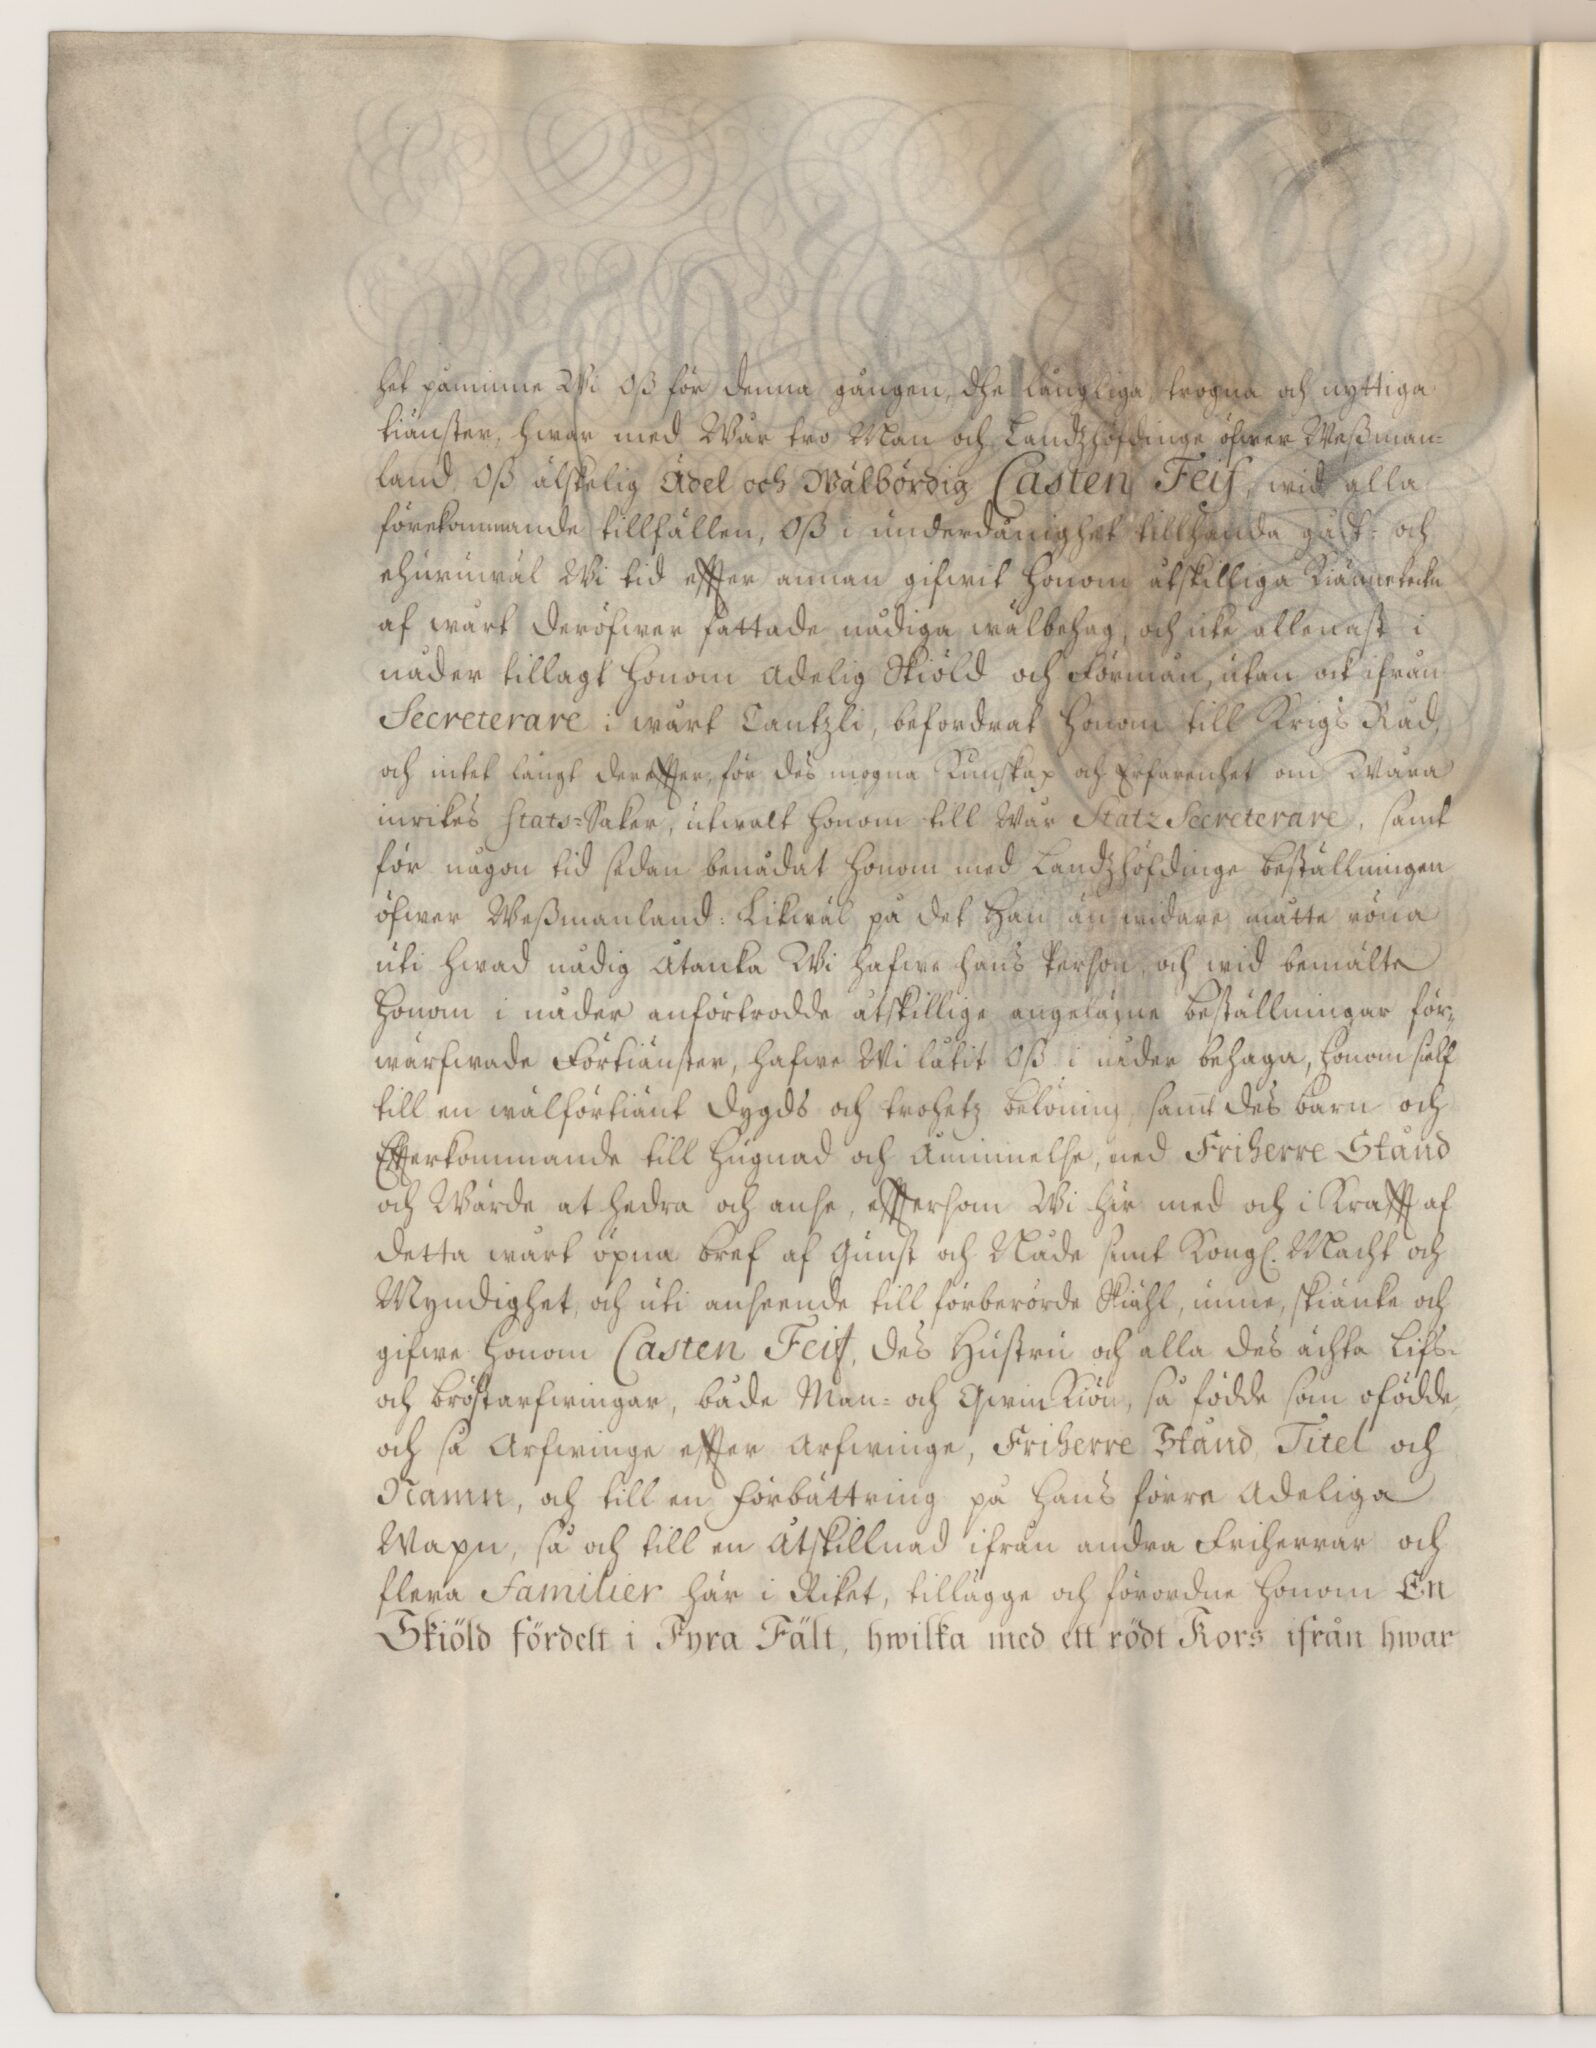 het påminne Wi Oß för denna gången, dhe långliga trogna och nyttiga
tiänster, hwar med Wår tro Man och Landzhöfdinge öfwer Weßman-
land, Oß älskelig Ädel och Wälbördig Casten Feif, wid alla
förekommande tillfällen, Oß i underdånighet tillhanda gåt: och
ehuruwäl Wi tid effter annan gifwit honom åtskilliga Kiännetekn
af wårt deröfwer fattade nådiga wälbehag, och icke allenast i
nåder tillagt honom Adelig Skiöld och Förmån, utan ock ifrån
Secreterare i wårt Cantzli, befordrat honom till Krigs Råd,
och intet långt dereffter, för des mogna Kunskap och Erfarenhet om Wåra
inrikes Stats-Saker, utwalt honom till Wår Statz Secreterare, samt
för någon tid sedan benådat honom med Landzhöfdinge beställningen
öfwer Weßmanland: Likwäl på det Han än widare måtte röna
uti hwad nådig åtanka Wi hafwe hans Person, och wid bemälte
honom i nåder anförtrodde åtskillige angelägne beställningar för-
wärfwade Förtiänster, hafwe Wi låtit Oß i nåder behaga, honom sielf
till en wälförtiänt dygds och trohetz belöning, samt des barn och
Effterkommande till hugnad och åminnelse, med Friherre Stånd
och Wärde at hedra och anse, efftersom Wi här med och i Krafft af
detta wårt öpna bref af Gunst och Nåde samt Kongl. Macht och
Myndighet, och uti anseende till förberörde Skiähl, unne, skiänke och
gifwe honom Casten Feif, des Hustru och alla des ächta Lifs-
och bröstarfwingar, både Man- och Qwin Kiön, så födde som ofödde,
och så Arfwinge effter Arfwinge, Friherre Stånd, Titel och
Namn, och till en förbättring på hans förre Adeliga
Wapn, så och till en Åtskillnad ifrån andra Friherrar och
flera Familier här i Riket, tillägge och förordne honom En
Skiöld fördelt i Fyra Fält, hwilka med ett rödt Kors ifrån hwar